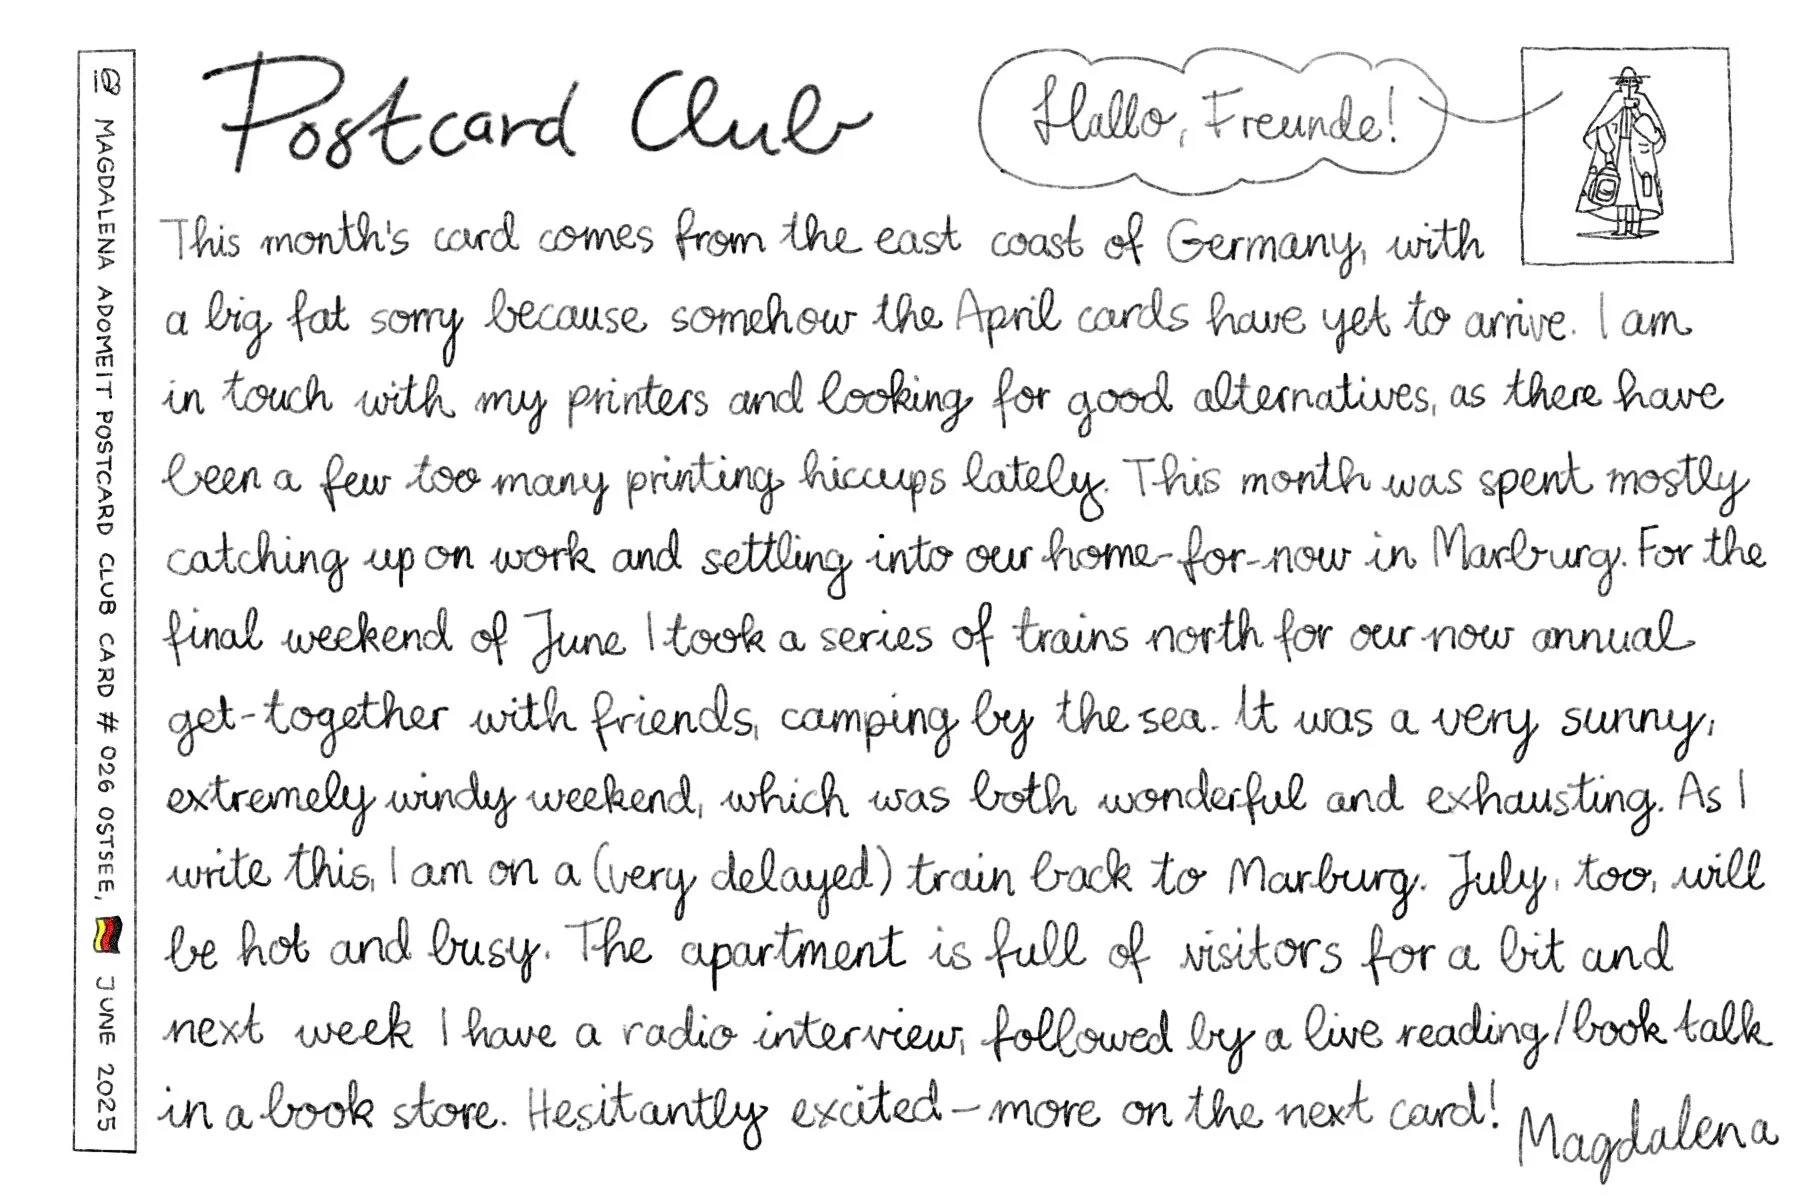 Postcard Club
Hallo, Freunde!
This month's card comes from the east coast of Germany, with
a big fat sorry because somehow the April cards have yet to arrive. I am
in touch with my printers and looking for good alternatives, as there have
been a few too many printing hiccups lately. This month was spent mostly
catching up on work and settling into our home-for-now in Marburg. For the
final weekend of June I took a series of trains north for our now annual
get-together with friends, camping by the sea. It was a very sunny,
extremely windy weekend, which was both wonderful and exhausting. As I
write this, I am on a (very delayed) train back to Marburg. July, too, will
be hot and busy. The apartment is full of visitors for a bit and
next week I have a radio interview, followed by a live reading/book talk
in a book store. Hesitantly excited – more on the next card!
Magdalena
MAGDALENA ADOMEIT POSTCARD CLUB CARD # 026 OSTSEE, JUNE 2025